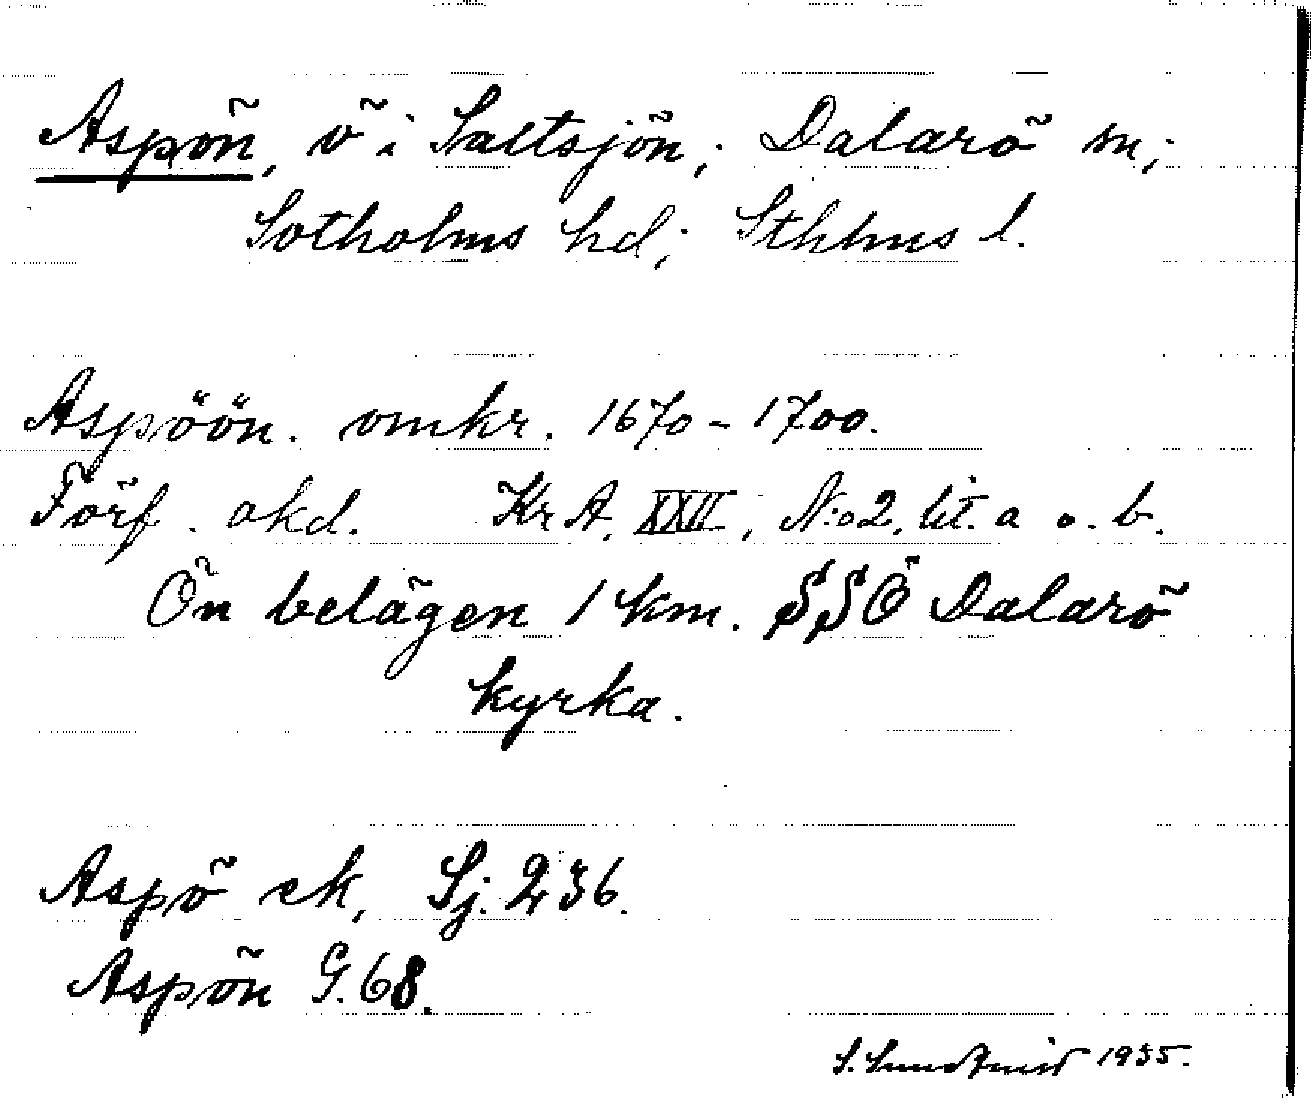 Aspön, ö i Saltsjön; Dalarö sn;
Sotholms hd; Sthlms l.
Aspöön. omkr. 1670-1700.
Förf. okd. Kr A. XXII, N:o 2, lit. a o. b.
Ön belägen 1 km. SSÖ Dalarö
kyrka.
Aspö ek, Sj. 236.
Aspön G. 68.
S. 1935.